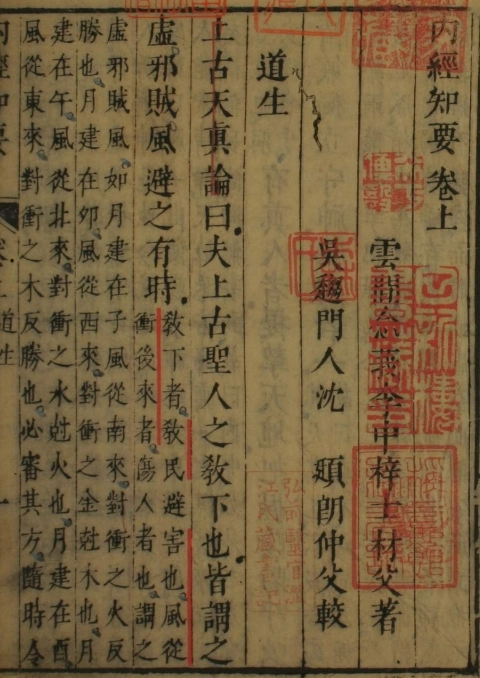 內經知要卷上
雲間念莪李中梓士材父著
吳趨門人沈 頲朗仲父較
道生
上古天真論曰夫上古聖人之敎下也皆謂之
虛邪賊風避之有時敎下者敎民避害也風從
衝後來者傷人者也謂之
虛邪賊風如月建在子風從南來對衝之火反
勝也月建在卯風從西來對衝之金尅木也月
建在午風從北來對衝之水尅火也月建在酉
風從東來對衝之木反勝也必審其方隨時令
內經知要 卷上 道生 一